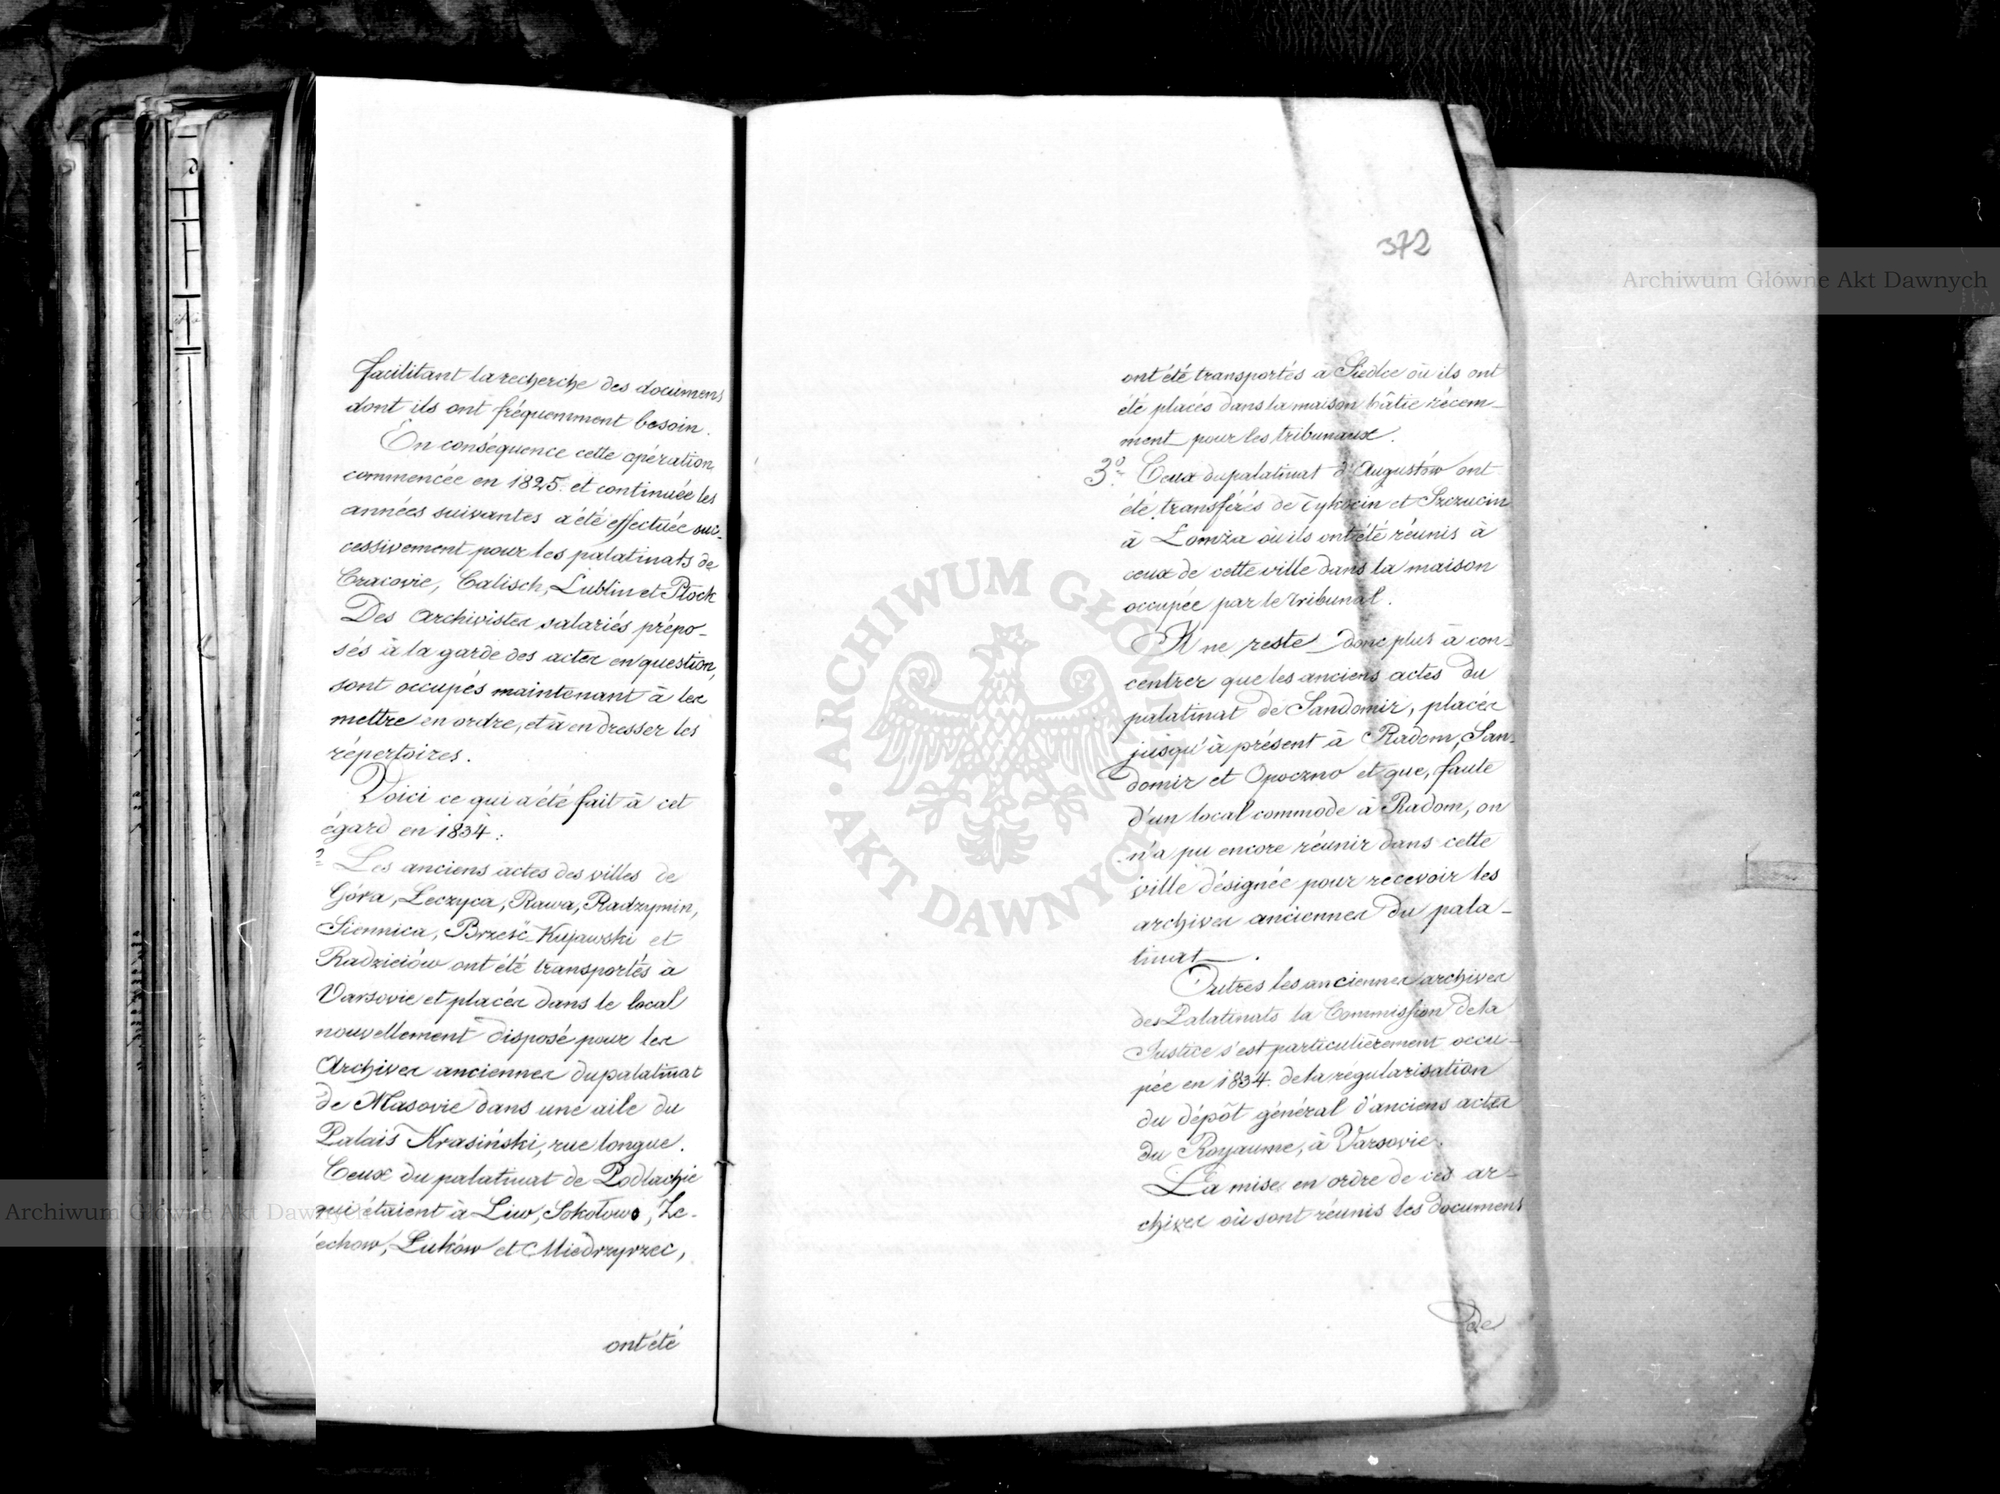 facilitant la recherche des documens
dont ils ont fréquemment besoin.
En conséquence cette opération
commencée en 1825. et continuée les
années suivantes a été effectuée suc-
cessivement pour les palatinats de
Cracovie, Calisch, Lublin et Płock
Des Archivistes salariés prépo-
sés à la garde des actes en question,
sont occupés maintenant à les
mettre en ordre, et à en dresser les
répertoires.
Voici ce qui a été fait à cet
égard en 1834:
Les anciens actes des villes de
Góra, Leczyca, Rawa, Radzymin,
Siennica, Brześć-Kujawski et
Radzieiów ont été transportés à
Varsovie et placés dans le local
nouvellement disposé pour les
Archives anciennes du palatinat
de Masovie dans une aile du
Palais Krasiński, rue longue.
Ceux du palatinat de Podlachie
qui étaient à Liw, Sokołow, Ze-
lechow, Luków et Miedrzyrzec,
ont été
372
ont été transportés à Siedlce où ils ont
été placés dans la maison bâtie récem-
ment pour les tribunaux.
3º Ceux du palatinat d'Augustów ont
été transférés de Tykocin et Szczucin
à Lomża où ils ont été réunis à
ceux de cette ville dans la maison
occupée par le tribunal.
Il ne reste donc plus à con-
centrer que les anciens actes du
palatinat de Sandomir, placés
jusqu'à présent à Radom, San-
domir et Opoczno et que, faute
d'un local commode à Radom, on
n'a pu encore réunir dans cette
ville désignée pour recevoir les
archives anciennes du pala-
tinat.
Outres les anciennes archives
des Palatinats la Commission de la
Justice s'est particulièrement occu-
pée en 1834. de la régularisation
du dépôt général d'anciens actes
du Royaume, à Varsovie.
La mise en ordre de ces ar-
chives où sont réunis les documens
de
Archiwum Główne Akt Dawnych
Archiwum Główne Akt Dawnych
ARCHIWUM GŁÓWNE
AKT DAWNYCH